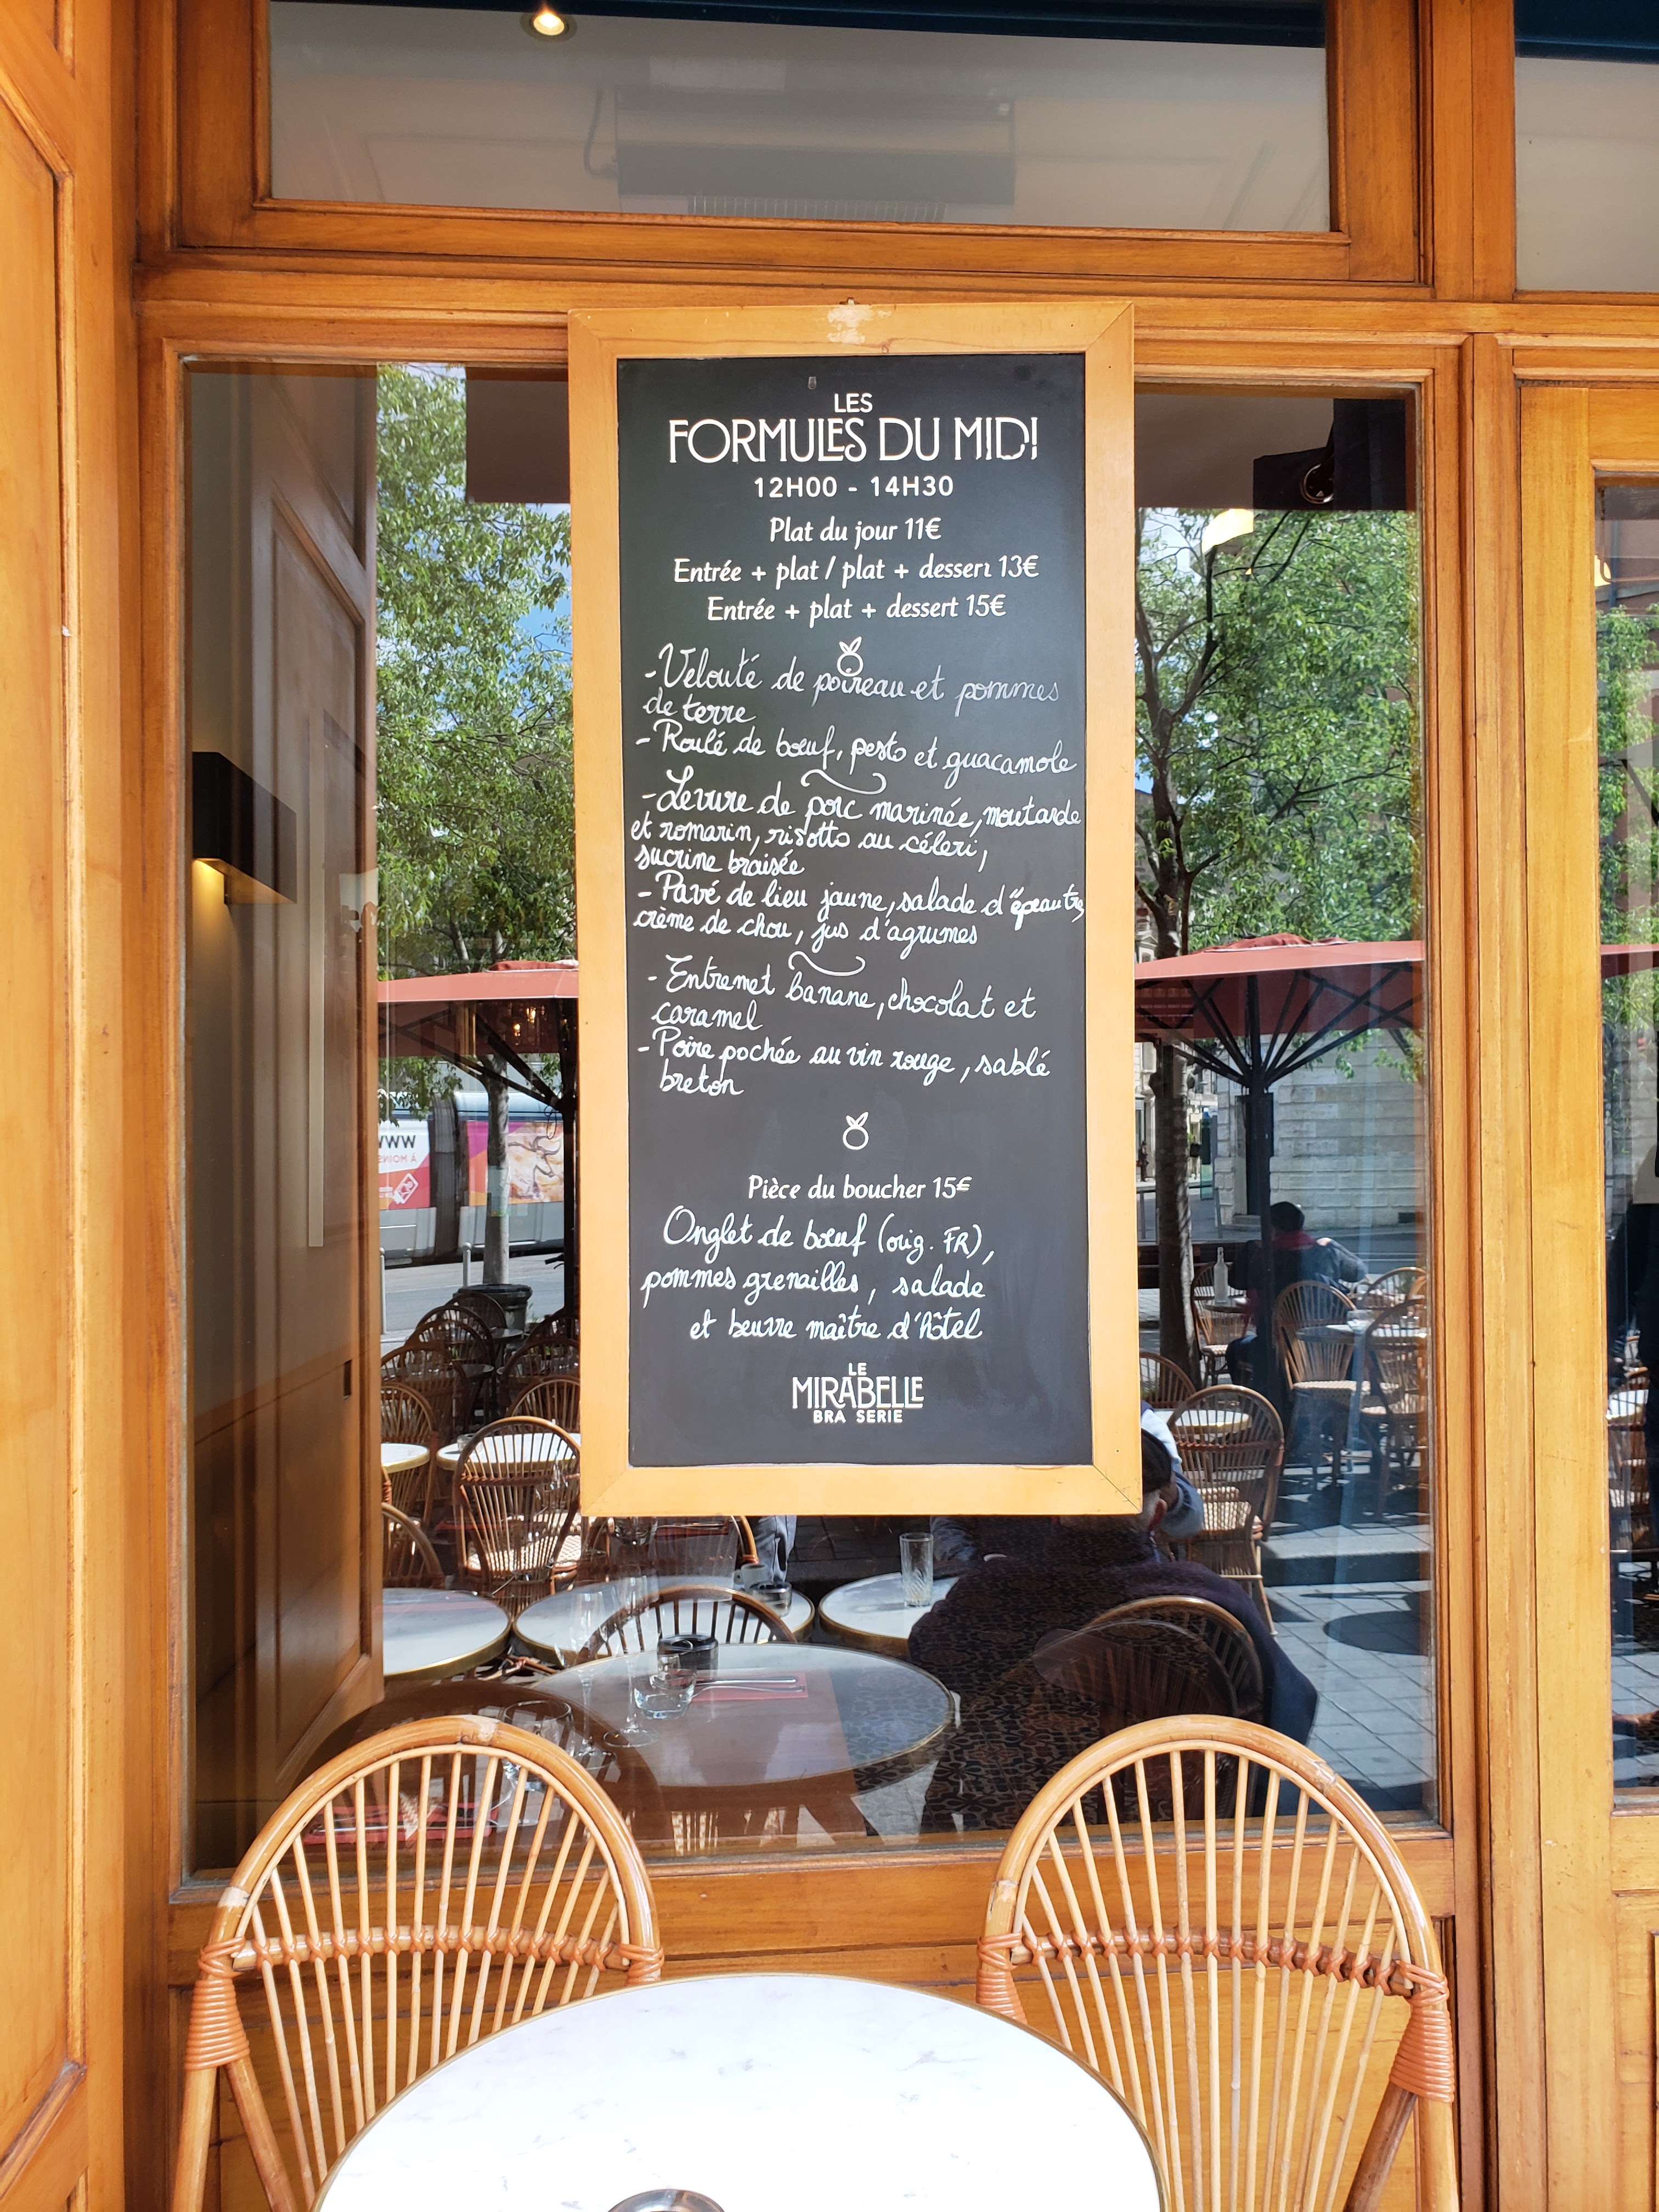 LES
FORMULES DU MIDI
12H00 - 14H30
Plat du jour 11€
Entrée + plat / plat + dessert 13€
Entrée + plat + dessert 15€
-Velouté de poireau et pommes
de terre
- Roulé de bœuf, pesto et guacamole
-Levure de porc marinée, moutarde
et romarin, risotto au céleri,
sucrine braisée
- Pavé de lieu jaune, salade d'épeautre,
crème de chou, jus d'agrumes
- Entremet banane, chocolat et
caramel
- Poire pochée au vin rouge, sablé
breton
Pièce du boucher 15€
Onglet de bœuf (orig. FR),
pommes grenailles, salade
et beurre maître d'hôtel
LE
MIRABELLE
BRA SERIE
WWW
À MOINS